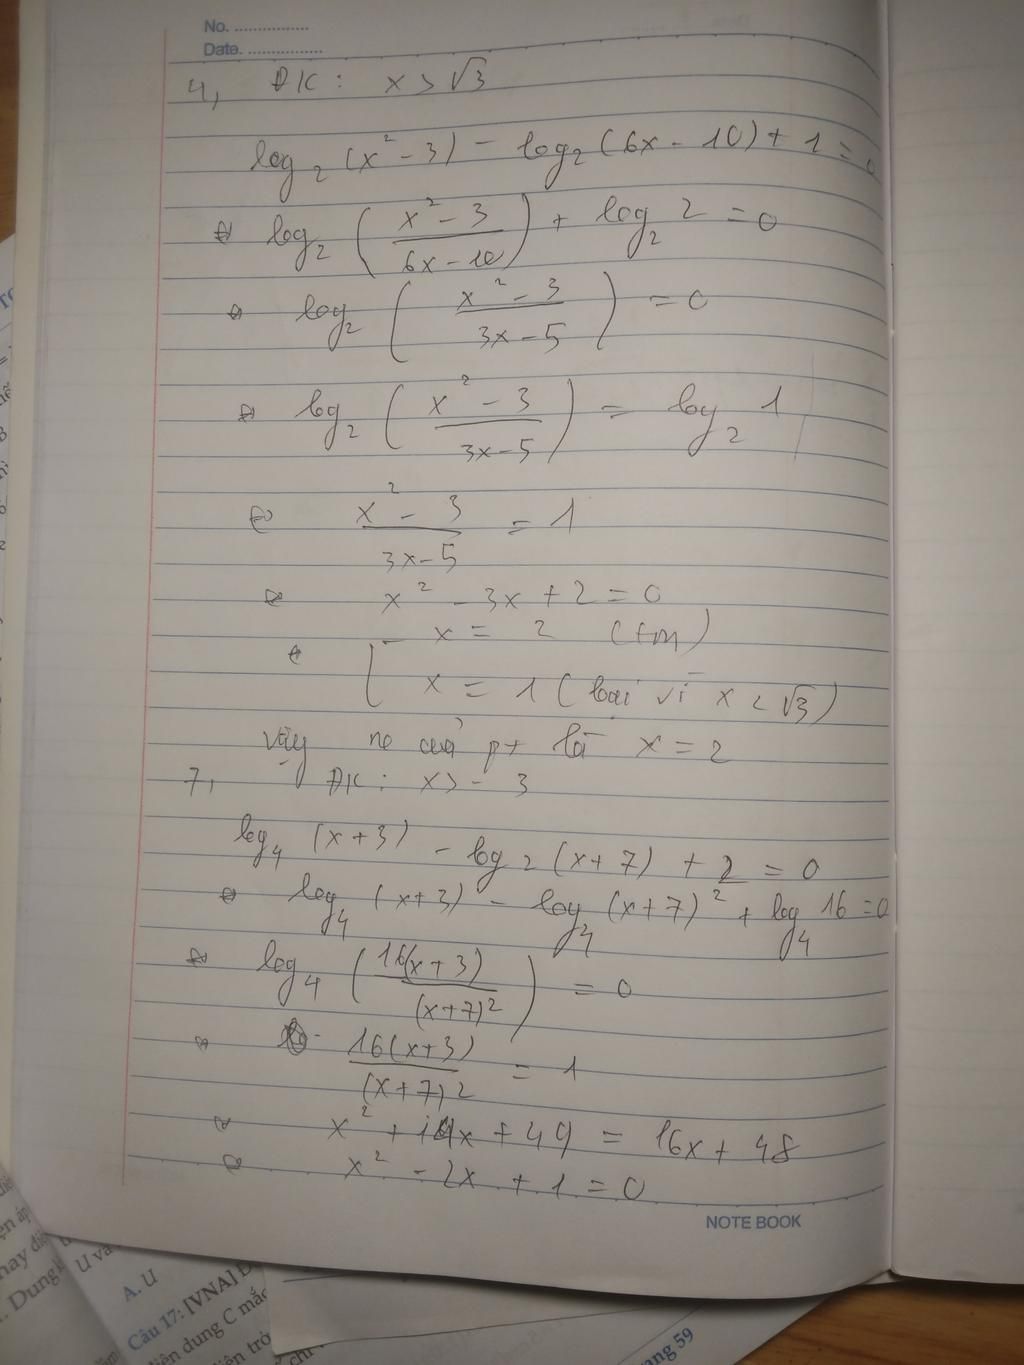 No. ................
Date. ................
4, ĐK: x > √3
log₂(x² - 3) - log₂(6x - 10) + 1 = 0
⇔ log₂((x² - 3)/(6x - 10)) + log₂ 2 = 0
⇔ log₂((x² - 3)/(3x - 5)) = 0
⇔ log₂((x² - 3)/(3x - 5)) = log₂ 1
⇔ (x² - 3)/(3x - 5) = 1
⇔ x² - 3x + 2 = 0
⇔ [ x = 2 (tm)
x = 1 (loại vì x < √3)
Vậy no của pt là x = 2
7, ĐK: x > -3
log₄(x + 3) - log₂(x + 7) + 2 = 0
⇔ log₄(x + 3) - log₄(x + 7)² + log₄ 16 = 0
⇔ log₄(16(x + 3)/(x + 7)²) = 0
⇔ 16(x + 3)/(x + 7)² = 1
⇔ x² + 14x + 49 = 16x + 48
⇔ x² - 2x + 1 = 0
NOTE BOOK
A. U
Câu 17: [VNA]
điện dung C mắc
ang 59